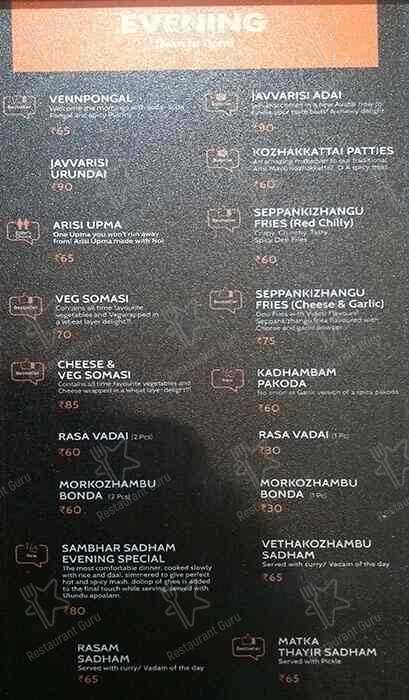 EVENING
VENNPONGAL
Pongal and spicy
₹65
JAVVARISI
URUNDAI
₹90
ARISI UPMA
One Upma you won't run away
from! Arisi Upma made with Noi
₹65
VEG SOMASI
Contains all time favourite
vegetables and Vegwrapped in
a wheat layer delight!!
70
CHEESE &
VEG SOMASI
Contains all time favourite vegetables and
Cheese wrapped in a wheat layer delight!!
₹85
RASA VADAI (2 Pcs)
₹60
MORKOZHAMBU
BONDA (2 Pcs)
₹60
SAMBHAR SADHAM
EVENING SPECIAL
The most comfortable dinner, cooked slowly
with rice and daal, simmered to give perfect
hot and spicy mash, dollop of ghee is added
to the final touch while serving, served with
Ulundu appalam.
₹80
RASAM
SADHAM
Served with curry/ Vadam of the day
₹65
JAVVARISI ADAI
₹90
KOZHAKKATTAI PATTIES
An amazing makeover to our traditional
₹60
SEPPANKIZHANGU
FRIES (Red Chilly)
Crispy, Crunchy, Tasty,
Spicy Desi Fries
₹60
SEPPANKIZHANGU
FRIES (Cheese & Garlic)
Desi Fries with Videsi Flavours!
Seppankizhangu fries flavoured with
Cheese and garlic powder
₹75
KADHAMBAM
PAKODA
No onion or Garlic version of a spicy pakoda
₹60
RASA VADAI (1 Pc)
₹30
MORKOZHAMBU
BONDA (1 Pc)
₹30
VETHAKOZHAMBU
SADHAM
Served with curry/ Vadam of the day
₹65
MATKA
THAYIR SADHAM
Served with Pickle
₹65
Restaurant Guru